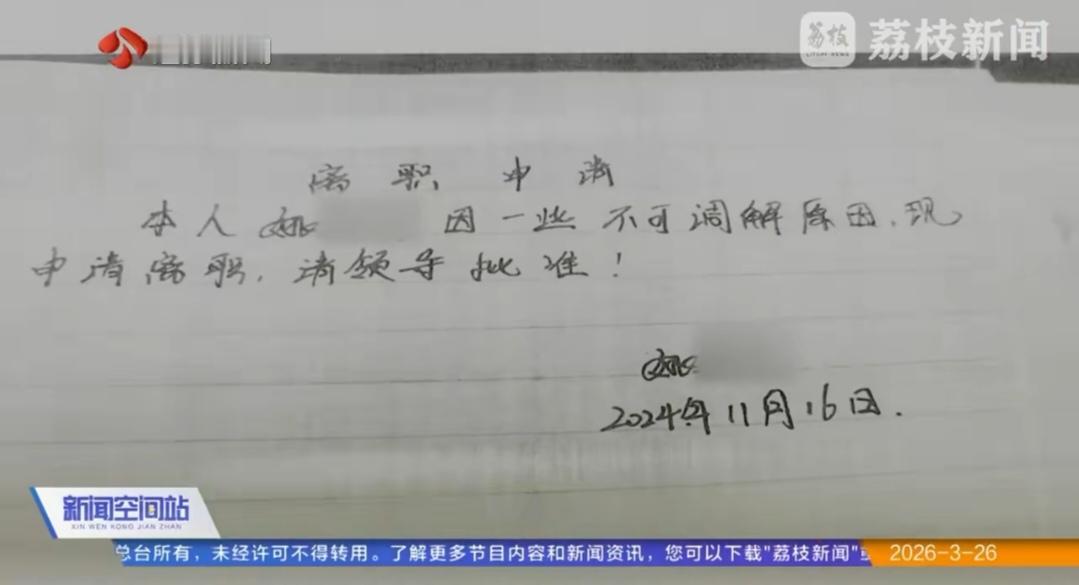 荔枝
荔枝新闻
离职申请
本人姚 因一些不可调解原因,现
申请离职,请领导批准!
姚
2024年11月16日.
新闻空间站
XIN WEN KONG JIAN ZHAN
总台所有,未经许可不得转用。了解更多节目内容和新闻资讯,您可以下载"荔枝新闻"
2026-3-26